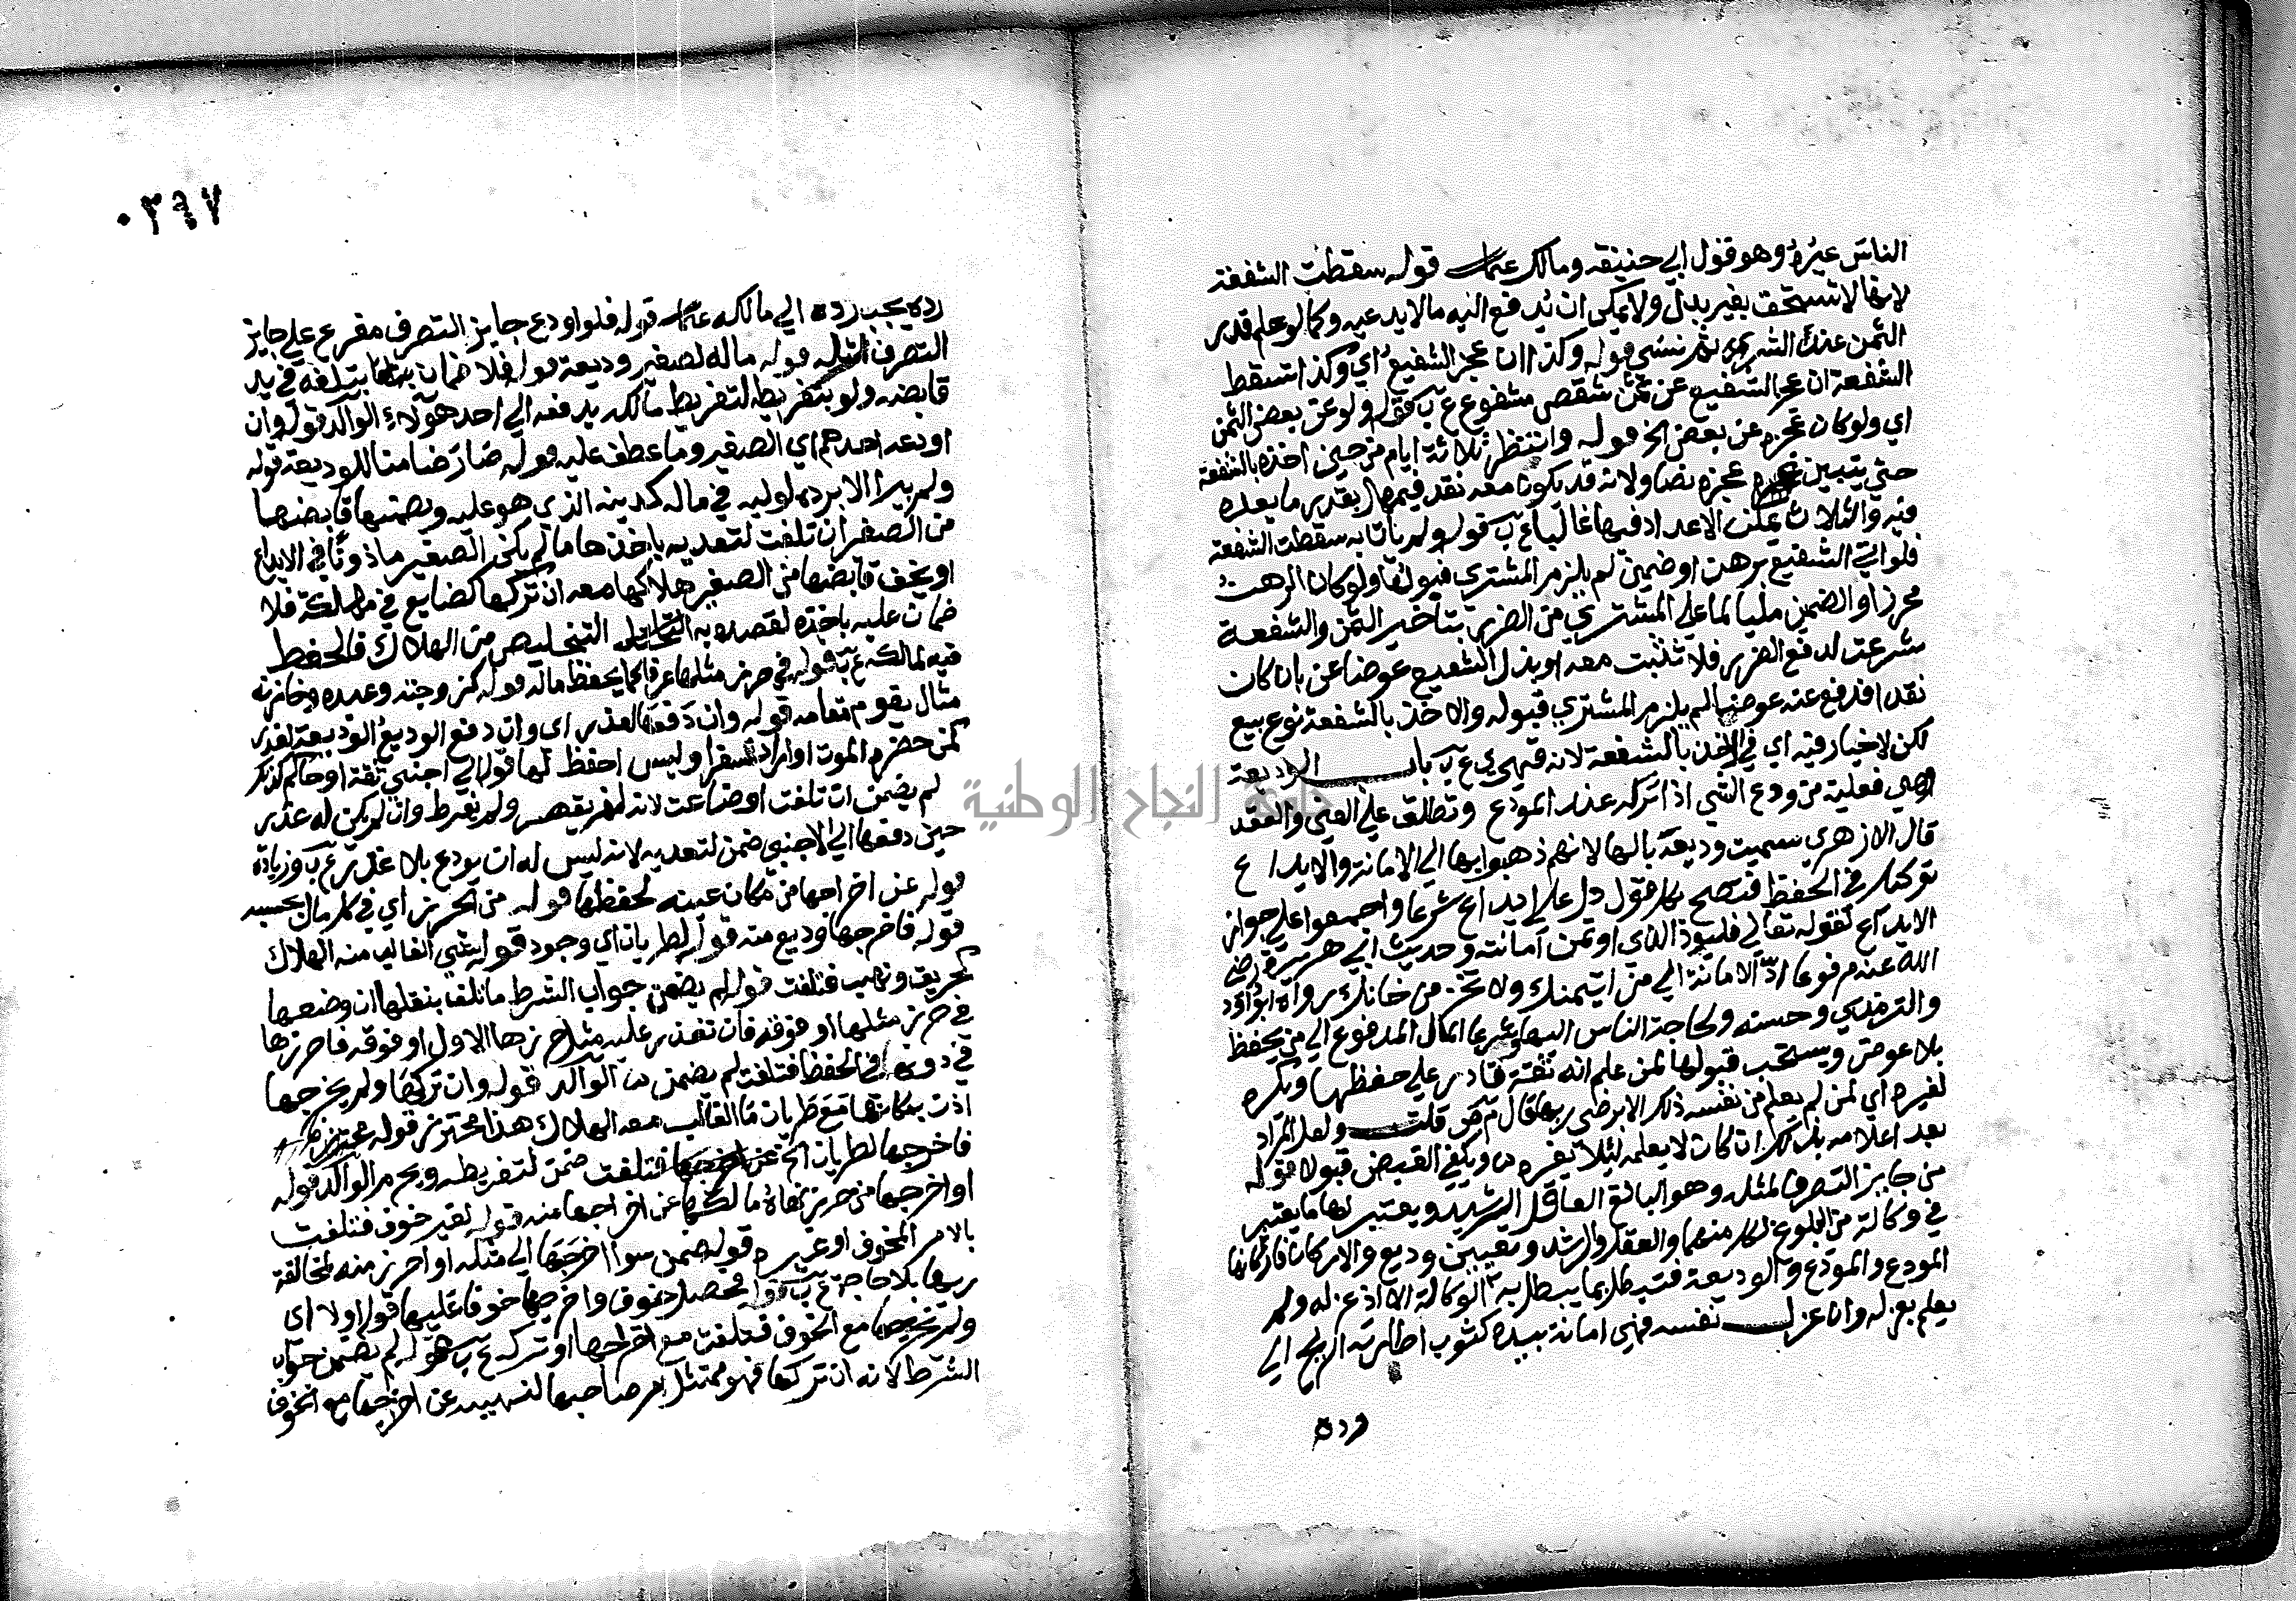 الناس غيره وهو قول ابي حنيفة ومالك قوله سقطت الشفعة
لانها لا تستحق بغير بدل ولا يمكن ان يدفع اليه ما لا يدعيه وكما لو علم قدر
الثمن عند الشرى ثم نسي قوله وكذا ان عجز الشفيع اي وكذا تسقط
الشفعة ان عجز الشفيع عن ثمن شقص مشفوع ع ب قوله ولو عن بعض الثمن
اي ولو كان عجزه عن بعض الخ قوله وانتظر ثلاثة ايام من حين اخذه بالشفعة
حتي يتبين عجزه نصا ولانه قد يكون معه نقد فيمهل بقدر ما يعده
فيه والثلاث يمكن الاعداد فيها غالبا ع ب قوله ولم يات به سقطت الشفعة
فلو اتي الشفيع برهن او ضمين لم يلزم المشتري قبولهما ولو كان الرهن
محرزا والضمين مليا لما علي المشتري من الضرر بتاخير الثمن والشفعة
شرعت لدفع الضرر فلا تثبت معه او بذل الشفيع عوضا عن بان كان
نقدا فدفع عنه عوضا لم يلزم المشتري قبوله والاخذ بالشفعة نوع بيع
لكن لا خيار فيه اي في الاخذ بالشفعة لانه قهري ع ب باب الوديعة
هي فعيلة من ودع الشي اذا تركه عند المودع وتطلق علي العين والعقد
قال الازهري سميت وديعة بالها لانهم ذهبوا بها الي الامانة والايداع
توكيل في الحفظ فتصح بكل قول دل علي ايداع شرعا واجمعوا علي جواز
الايداع لقوله تعالي فليود الذي اوتمن امانته وحديث ابي هريرة رضي
الله عنه مرفوعا ادّ الامانة الي من ايتمنك ولا تخن من خانك رواه ابو داود
والترمذي وحسنه ولحاجة الناس اليها وشرعا المال المدفوع الي من يحفظه
بلا عوض ويستحب قبولها لمن علم انه ثقة قادر علي حفظها ويكره
لغيره اي لمن لم يعلم من نفسه ذلك الا برضي ربها قال قلت ولعل المراد
بعد اعلامه بذلك ان كان لا يعلمه ليلا يغره ويكفي القبض قبولا قوله
من جايز التصرف لمثله وهو البالغ العاقل الرشيد ويعتبر لها ما يعتبر
في وكالة من البلوغ لكل منهما والعقل والرشد وتعيين وديع والاركان فاركانها
المودع والمودع والوديعة فتبطل بما يبطل به الوكالة الا اذا عزله ولم
يعلم بعزله وان عزل نفسه فهي امانة بيده كثوب اطارته الريح الي
رده
٠٣٦٧
رده يجب رده الي مالكه قوله فلو اودع جايز التصرف مفرع علي جايز
التصرف لمثله قوله ماله لصغير وديعة قوله فلا ضمان بتلفه في يد
قابضه ولو بتفريطه لتفريط مالكه بدفعه الي احد هولاء الوالد قوله وان
اودعه احدهم اي الصغير وما عطف عليه قوله صار ضامنا للوديعة قوله
ولم يبرا الا برده لوليه في ماله كدينه الذي هو عليه ويضمنها قابضها
من الصغير ان تلفت لتعديه باخذها ما لم يكن الصغير ماذونا في الايداع
او يخف قابضها من الصغير هلاكها معه ان تركها كضايع في مهلكة فلا
ضمان عليه باخذه لقصده به التخليص من الهلاك فالحفظ
فيه لمالكه ع ب قوله في حرز مثلها عرفا كما يحفظ ماله قوله كزوجته وعبده وخازنه
مثال يقوم مقامه قوله وان دفعها لعذر اي وان دفع الوديع الوديعة لعذر
كمن حضره الموت او اراد سفرا وليس احفظ لها قوله الي اجنبي ثقة او حاكم
لم يضمن ان تلفت او ضاعت لانه لم يتعد ولم يفرط وان لم يكن له عذر
حين دفعها الي الاجنبي ضمن لتعديه لانه ليس له ان يودع بلا عذر ع ب وزيادة
قوله عن اخراجها من مكان عينه لحفظها قوله من الحرز اي في كل مال بحسبه
قوله فاخرجها وديع منه قوله لطريان اي وجود قوله شي الغالب منه الهلاك
كحريق ونهب فتلفت قوله لم يضمن جواب الشرط ما تلف بنقلها ان وضعها
في حرز مثلها او فوقه فان تعذر عليه مثل حرزها الاول او فوقه فاحرزها
في دونه في الحفظ فتلفت لم يضمن الوالد قوله وان تركها ولم يخرجها
اذن بمكانها مع طريان ما الغالب معه الهلاك هذا محترز قوله
فاخرجها لطريان الخ فتلفت ضمن لتفريطه ويحرم الوالد قوله
او اخرجها من حرز نهاه مالكها عن اخراجها منه قوله لغير خوف فتلفت
بالامر المخوف او غيره قوله ضمن سوا اخرجها الي مثله او احرز منه لمخالفة
ربها بلا حاجة ع ب قوله فحصل خوف واخرجها خوفا عليها قوله او لا اي
ولم يخرجها مع الخوف فتلفت مع اخراجها او تركه ع ب قوله لم يضمن جواب
الشرط لانه ان تركها فهو ممتثل امر صاحبها لنهيه عن اخراجها مع الخوف
جامعة النجاح الوطنية